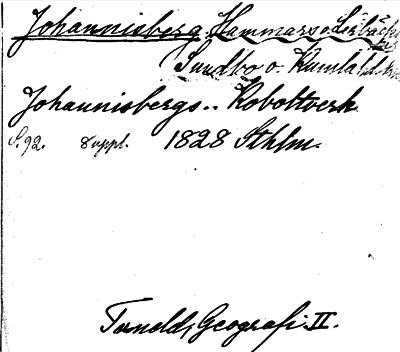 Johannisberg. Hammars o. Lerbäcks
Sundbo o. Kumla hd.
Johannisbergs.. Koboltverk
S. 92. Suppl. 1828 Sthlm.
Tuneld, Geografi. II.